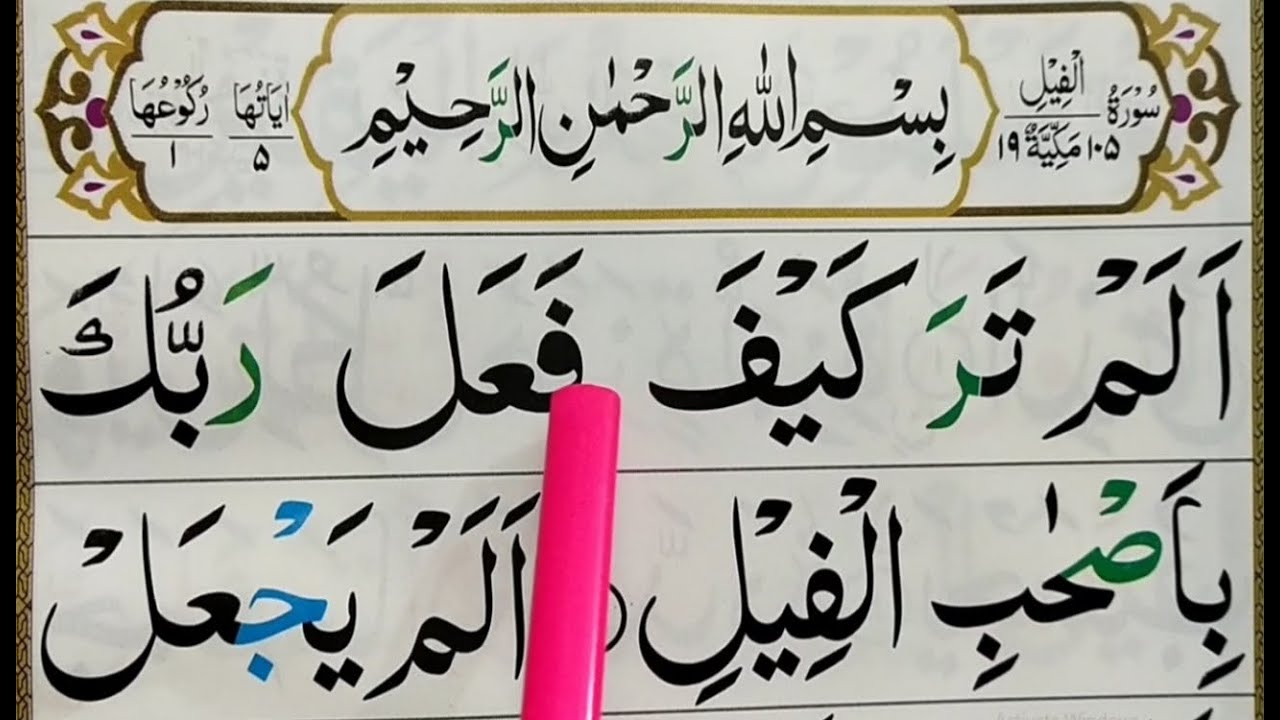 سُوْرَةُ الْفِيْلِ
١٠٥ مَكِّيَّةٌ ١٩
بِسْمِ اللهِ الرَّحْمٰنِ الرَّحِيْمِ
اٰيَاتُهَا ٥
رُكُوْعُهَا ١
اَلَمْ تَرَ كَيْفَ فَعَلَ رَبُّكَ
بِاَصْحٰبِ الْفِيْلِ اَلَمْ يَجْعَلْ